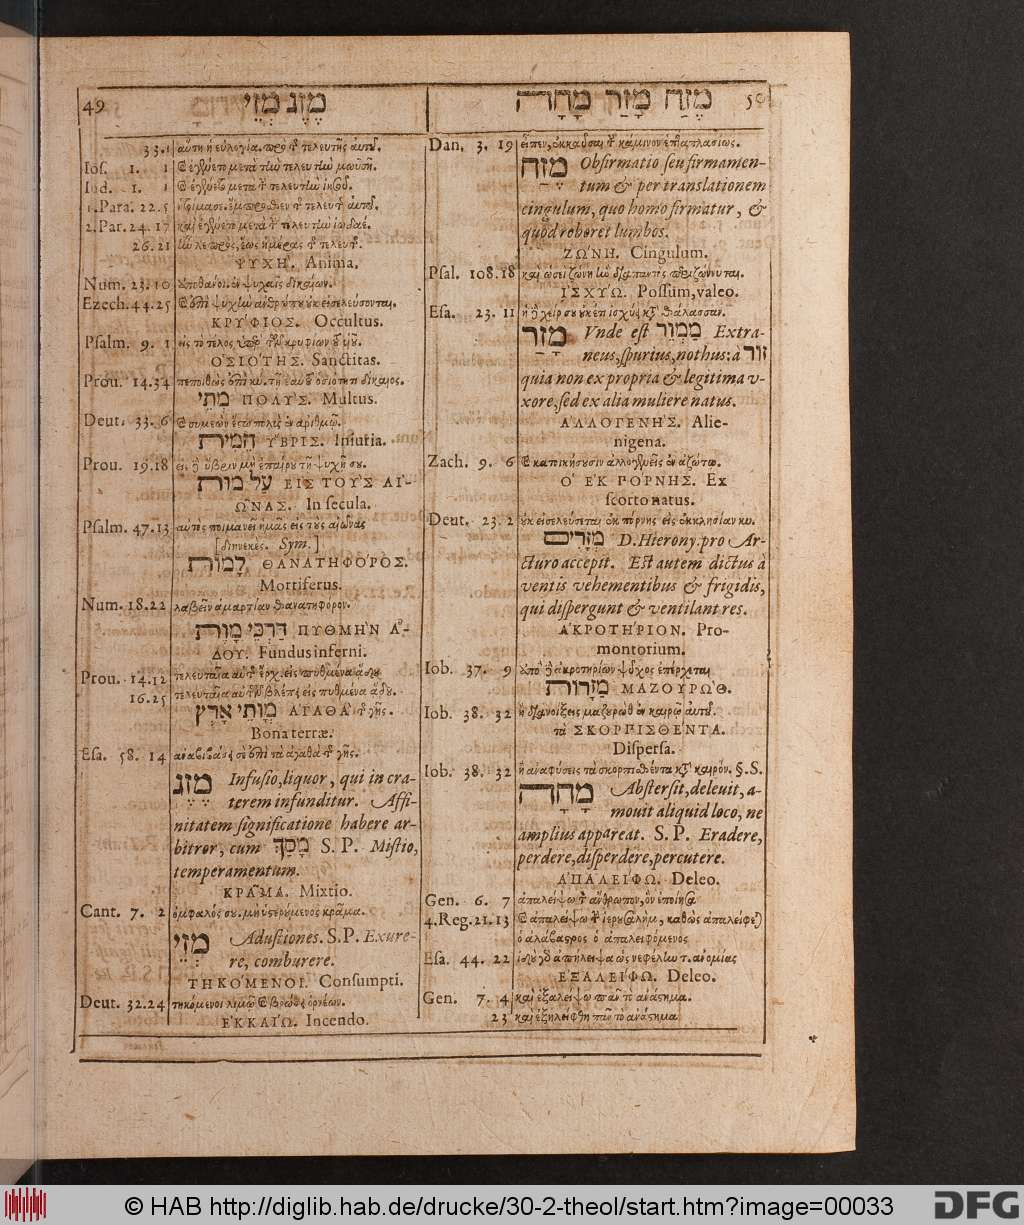 49 מֶזֶג מְזֵי
33.1 αὕτη ἡ εὐλογία. πρὸ τῆς τελευτῆς αὐτοῦ.
Ios. 1. 1 καὶ ἐγένετο μετὰ τὴν τελευτὴν μωϋσῆ.
Iud. 1. 1 καὶ ἐγένετο μετὰ τὴν τελευτὴν
1.Para. 22.5
2.Par. 24.17 καὶ ἐγένετο μετὰ τὴν τελευτὴν ἰωδαέ.
26.21 ἕως ἡμέρας τῆς τελευτῆς.
ΨΥΧΗ'. Anima.
Num. 23.10 ἀποθάνοι ἐν ψυχαῖς δικαίων.
Ezech. 44.25 καὶ ἐπὶ ψυχὴν ἀνθρώπου οὐκ εἰσελεύσονται.
ΚΡΥ'ΦΙΟΣ. Occultus.
Psalm. 9. 1 εἰς τὸ τέλος ὑπὲρ τῶν κρυφίων τοῦ υἱοῦ.
Ο'ΣΙΟ'ΤΗΣ. Sanctitas.
Prou. 14.34 πεποιθὼς ἐπὶ κυ. τῇ ἑαυτοῦ ὁσιότητι δίκαιος.
מְתֵי ΠΟΛΥ'Σ. Multus.
Deut. 33. 6 καὶ συμεὼν ἔστω πολὺς ἐν ἀριθμῷ.
הָמִית Υ'ΒΡΙΣ. Iniuria.
Prou. 19.18 εἰς δὲ ὕβριν μὴ ἐπαίρου τῇ ψυχῇ σου.
עַל מוּת ΕΙΣ ΤΟΥΣ ΑΙ'-
Ω͂ΝΑΣ. In secula.
Psalm. 47.13 αὐτὸς ποιμανεῖ ἡμᾶς εἰς τοὺς αἰῶνας
[διηνεκές. Sym.]
לָמוּת ΘΑΝΑΤΗΦΟ'ΡΟΣ.
Mortiferus.
Num. 18.22 λαβεῖν ἁμαρτίαν θανατηφόρον.
דַּרְכֵי מָוֶת ΠΥΘΜΗ'Ν Α'-
ΔΟΥ. Fundus inferni.
Prou. 14.12 τελευταῖα αὐτῆς ἔρχε. εἰς πυθμένα ἅδου
16.25 τελευταῖα αὐτῶν βλέπει εἰς πυθμένα ἅδου.
מוּתֵי אָרֶץ ΑΓΑΘΑ' τῆς γῆς.
Bona terræ.
Esa. 58. 14 ἀναβιβάσει σε ἐπὶ τὰ ἀγαθὰ τῆς γῆς.
מֶזֶג Infusio, liquor, qui in cra-
terem infunditur. Affi-
nitatem significatione habere ar-
bitror, cum מָסַךְ S. P. Mistio,
temperamentum.
ΚΡΑ͂ΜΑ. Mixtio.
Cant. 7. 2 ὀμφαλός σου. μὴ ὑστερούμενος κρᾶμα.
מְזֵי Adustiones. S. P. Exure-
re, comburere.
ΤΗΚΟ'ΜΕΝΟΙ. Consumpti.
Deut. 32.24 τηκόμενοι λιμῷ καὶ βρώσει ὀρνέων.
ΕΚΚΑΙ'Ω. Incendo.
מֶזַח מָזַר מָחָה 50
Dan. 3. 19 εἶπεν, ἐκκαῦσαι τὴν κάμινον ἑπταπλασίως.
מֶזַח Obfirmatio seu firmamen-
tum & per translationem
cingulum, quo homo firmatur, &
quod roboret lumbos.
ΖΩ'ΝΗ. Cingulum.
Psal. 108.18 καὶ ὡσεὶ ζώνη ἣν διαπαντὸς περιζώννυται.
Ι'ΣΧΥ'Ω. Possum, valeo.
Esa. 23. 11 ἡ δὲ χείρ σου οὐκέτι ἰσχύει κατὰ θάλασσαν.
מָזַר Vnde est מַמְזֵר Extra-
neus, spurius, nothus: à זוּר
quia non ex propria & legitima v-
xore, sed ex alia muliere natus.
ΑΛΛΟΓΕΝΗ'Σ. Alie-
nigena.
Zach. 9. 6 καὶ κατοικήσουσιν ἀλλογενεῖς ἐν ἀζώτῳ.
Ο' ΕΚ ΠΟΡΝΗΣ. Ex
scorto natus.
Deut. 23. 2 οὐκ εἰσελεύσεται ἐκ πόρνης εἰς ἐκκλησίαν κυ.
מְזָרִים D. Hierony. pro Ar-
cturo accepit. Est autem dictus à
ventis vehementibus & frigidis,
qui dispergunt & ventilant res.
ΑΚΡΟΤΗ'ΡΙΟΝ. Pro-
montorium.
Iob. 37. 9 ἀπὸ δὲ ἀκροτηρίων ψῦχος ἐπέρχεται
מַזָּרוֹת ΜΑΖΟΥΡΩ'Θ.
Iob. 38. 32 ἢ διανοίξεις μαζουρὼθ ἐν καιρῷ αὐτοῦ.
τὰ ΣΚΟΡΠΙΣΘΕΝΤΑ.
Dispersa.
Iob. 38. 32 ἢ ἀναφύσεις τὰ σκορπισθέντα κατὰ καιρόν. §. S.
מָחָה Abstersit, deleuit, a-
mouit aliquid loco, ne
amplius appareat. S. P. Eradere,
perdere, disperdere, percutere.
ΑΠΑΛΕΙΦΩ. Deleo.
Gen. 6. 7 ἀπαλείψω τὸν ἄνθρωπον, ὃν ἐποίησα
4.Reg. 21.13 καὶ ἀπαλείψω τὴν ἱερουσαλὴμ, καθὼς ἀπαλείφεται
ὁ ἀλάβαστρος ὁ ἀπαλειφόμενος
Esa. 44. 22 ἰδοὺ γὰρ ἀπήλειψα ὡς νεφέλην τ. ἀνομίας
ΕΞΑΛΕΙ'ΦΩ. Deleo.
Gen. 7. 4 καὶ ἐξαλείψω πᾶν τὸ ἀνάστημα.
23 καὶ ἐξηλείφθη πᾶν τὸ ἀνάστημα
© HAB http://diglib.hab.de/drucke/30-2-theol/start.htm?image=00033
DFG